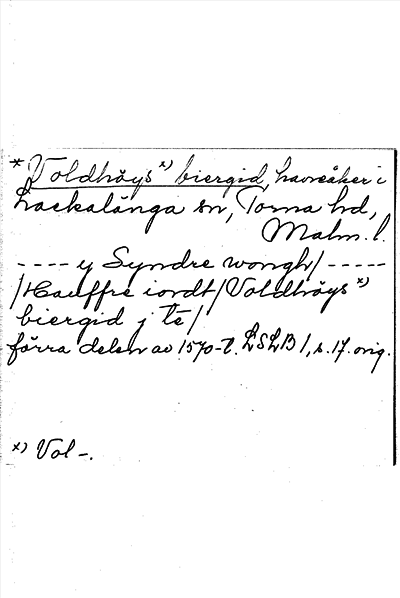 * Voldhöys x) biergid, havreåker i
Lackalänga sn, Torna hd,
Malm. l.
---- y Syndre wongh/ -----
/Hauffre iordt/Voldhöys x)
biergid j te/
förra delen av 1570-t. LSLB 1, s. 17. orig.
x) Vol-.